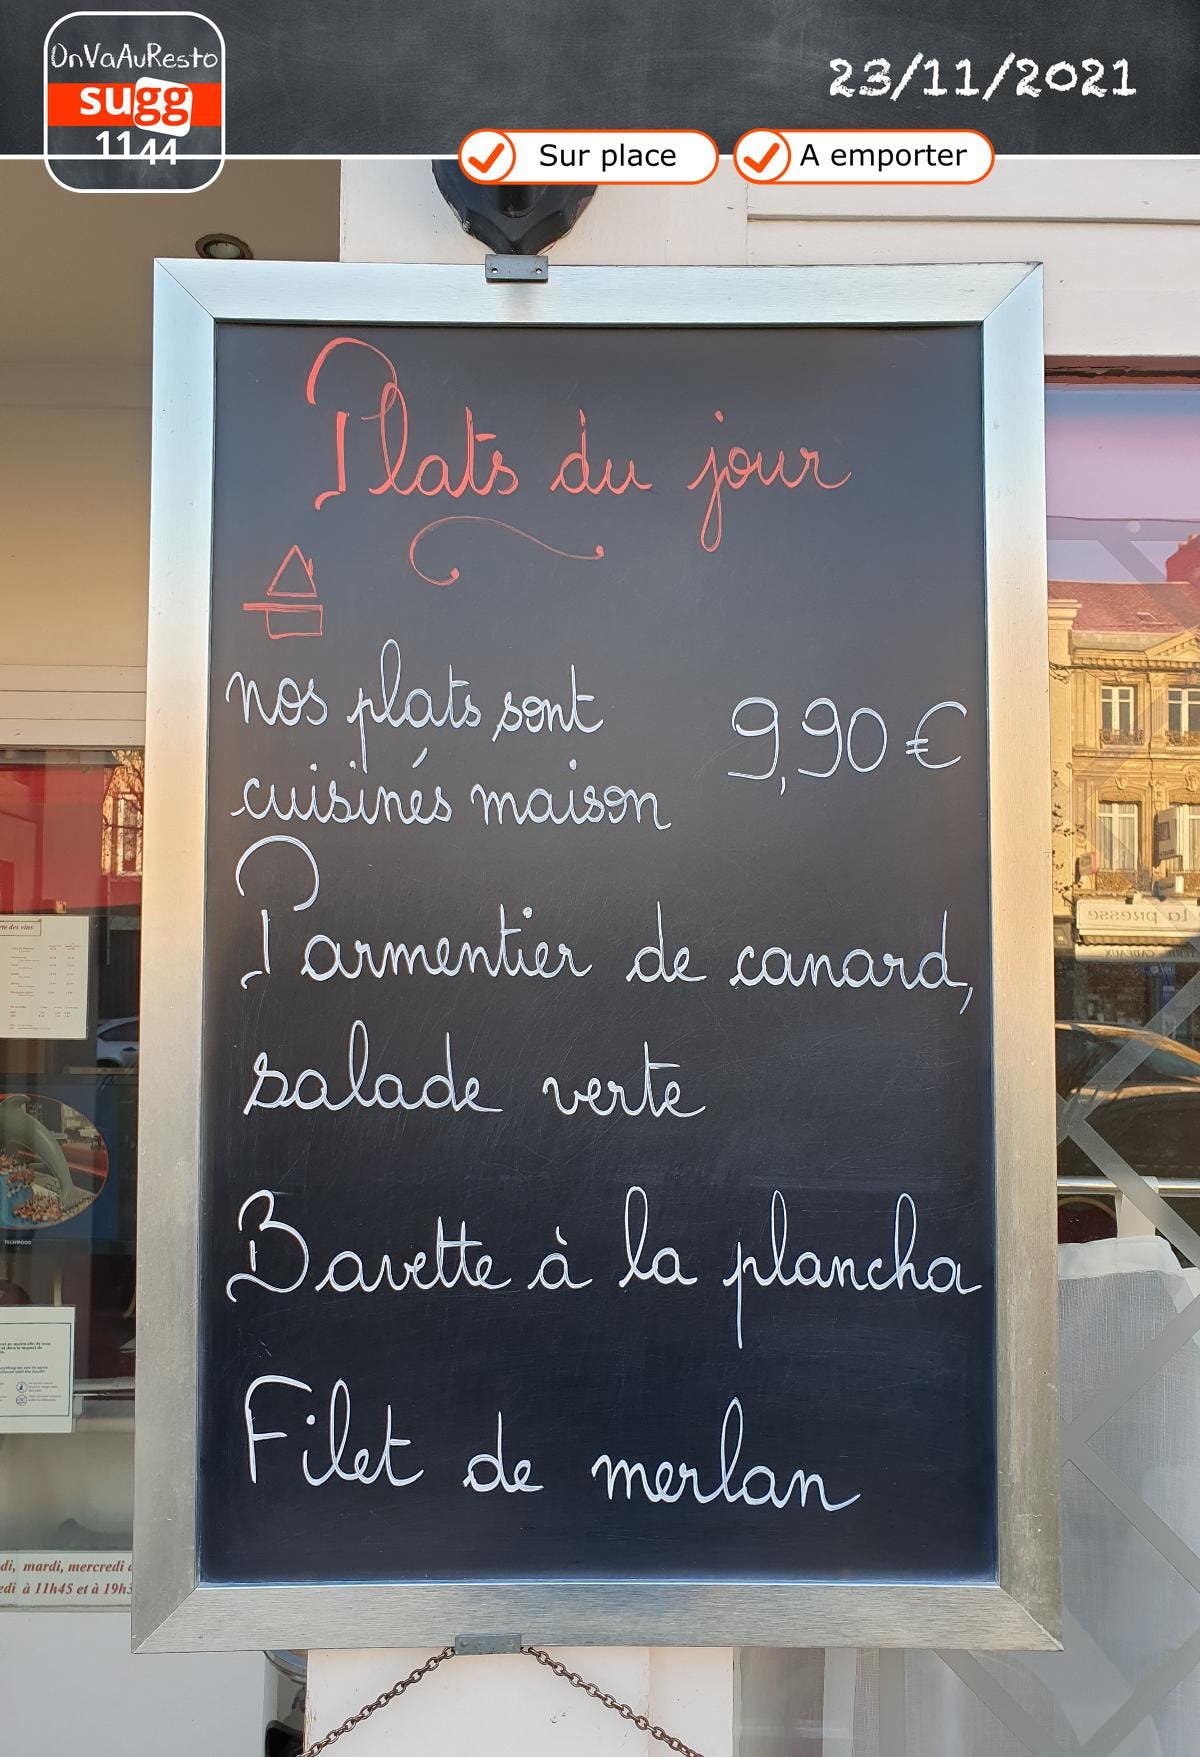 OnVaAuResto
sugg
1144
23/11/2021
Sur place
A emporter
Plats du jour
nos plats sont
9,90 €
cuisinés maison
Parmentier de canard,
salade verte
Bavette à la plancha
Filet de merlan
rte des vins
la presse
CADEAUX
TECHWOOD
di, mardi, mercredi
edi à 11h45 et à 19h3